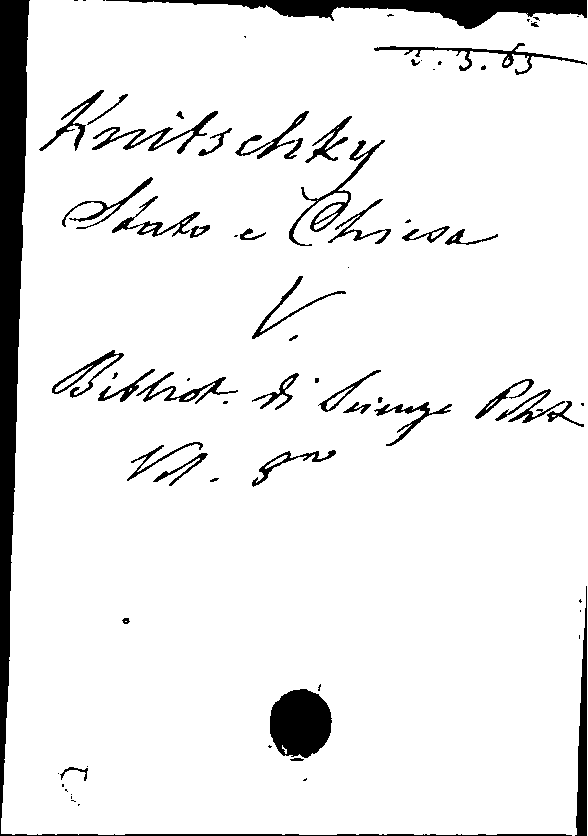 2.3.63
Knitschky
Stato e Chiesa
V.
Bibliot. di Scienze Polit.
Vol. 8vo